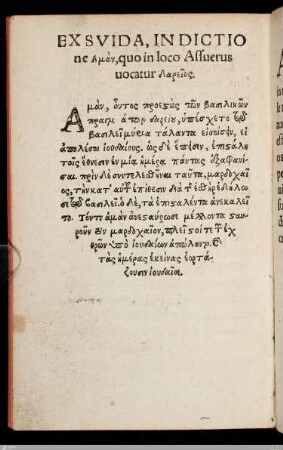 EX SVIDA, IN DICTIO
ne Αμὰν, quo in loco Assuerus
uocatur Δαρεῖος.
Αμὰν, οὗτος προεστὼς τῶν βασιλικῶν
πραγμάτων δαρείου, ὑπέσχετο τῷ
βασιλεῖ μύρια τάλαντα εἰσοίσειν, εἰ
ἀπολέσοι ἰουδαίους. ὡς δὲ ἔπεισεν, ἐπέσαλε
τοῖς ἔθνεσιν ἐν μιᾷ ἡμέρᾳ πάντας ἐξαφανί-
σαι. πρὶν δὲ συντελεσθῆναι ταῦτα, μαρδοχαῖ
ος, τὴν κατ' αὐτῶν ἐπίθεσιν διὰ τ͂
βασιλεῖ. ὁ δὲ, τὰ ἐπισαλέντα ἀνεκαλεῖ
το. τόν τε ἀμὰν ἀνεσαύρωσε μέλλοντα σαυ-
ροῦν τὸν μαρδοχαῖον,
χθρῶν ὑπὸ ἰουδαίων
τὰς ἡμέρας ἐκείνας ἑορτά-
ζουσιν ἰουδαῖοι.